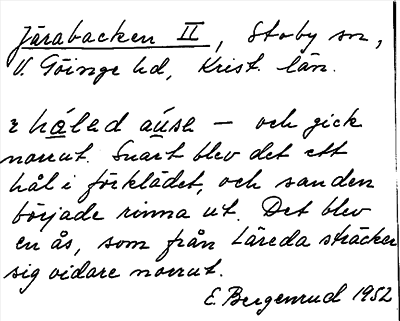 Järabacken II, Stoby sn,
V. Göinge hd, Krist. län.
håled — och gick
norrut. Snart blev det ett
hål i förklädet, och sanden
började rinna ut. Det blev
en ås, som från Läreda sträcker
sig vidare norrut.
E. Bergenrud 1952